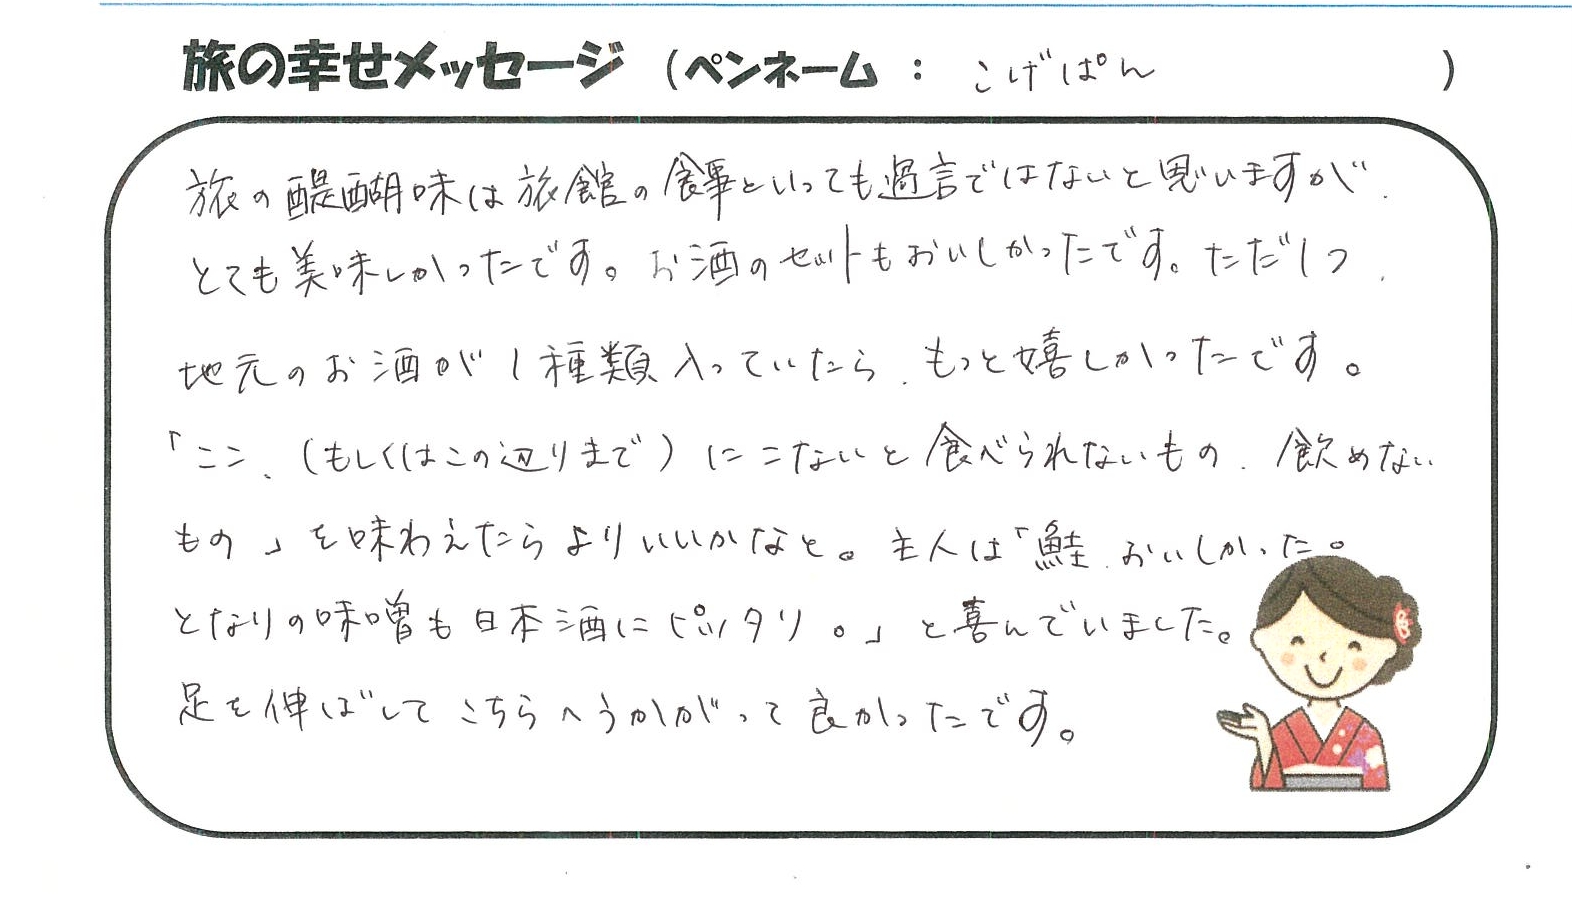 旅の幸せメッセージ（ペンネーム：こげぱん）
旅の醍醐味は旅館の食事といっても過言ではないと思いますが、
とても美味しかったです。お酒のセットもおいしかったです。ただ1つ、
地元のお酒が1種類入っていたら、もっと嬉しかったです。
「ここ、（もしくはこの辺りまで）にこないと食べられないもの、飲めない
もの」を味わえたらよりいいかなと。主人は「鮭、おいしかった。
となりの味噌も日本酒にピッタリ。」と喜んでいました。
足を伸ばしてこちらへうかがって良かったです。